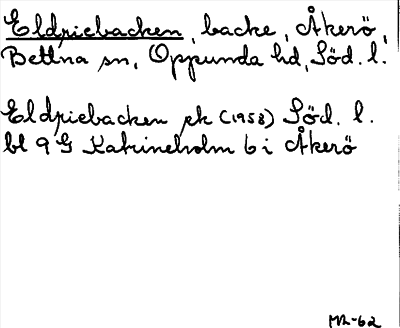 Eldpiebacken, backe, Åkerö,
Bettna sn, Oppunda hd, Söd. l.
Eldpiebacken ek (1958) Söd. l.
bl 9 G Katrineholm 6 i Åkerö
Mh-62